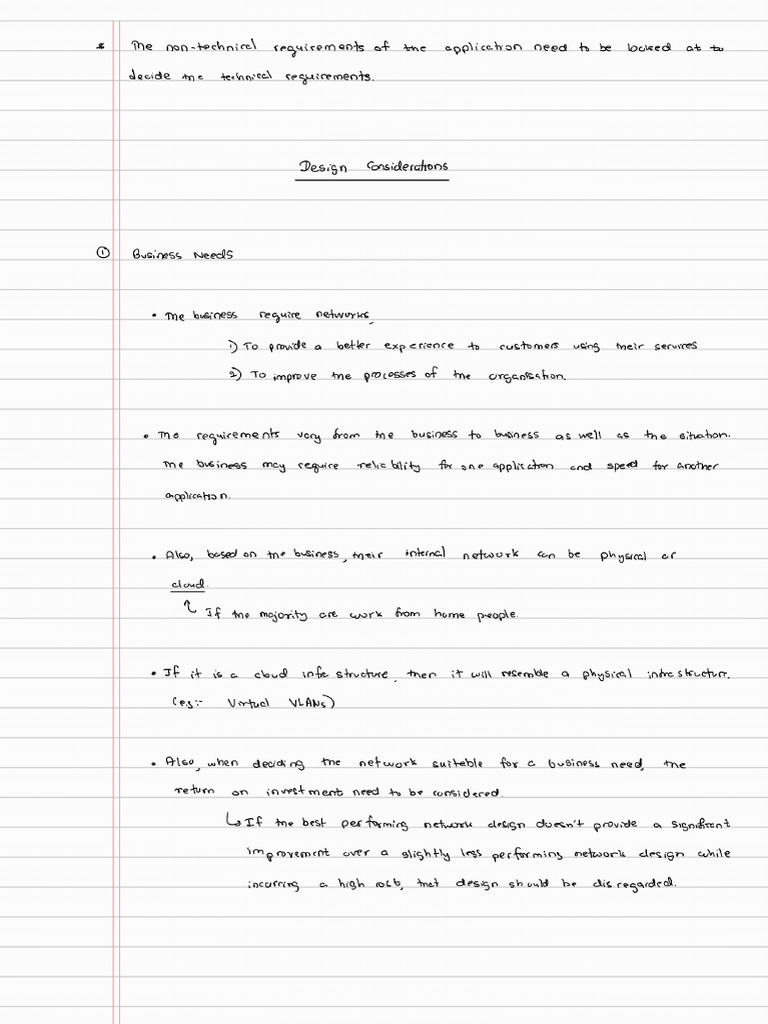 * The non-technical requirements of the application need to be looked at to
decide the technical requirements.
Design Considerations
① Business Needs
• The business require networks,
1) To provide a better experience to customers using their services
2) To improve the processes of the organisation.
• The requirements vary from the business to business as well as the situation.
The business may require reliability for one application and speed for another
application.
• Also, based on the business, their internal network can be physical or
cloud.
↑ If the majority are work from home people.
• If it is a cloud infrastructure, then it will resemble a physical infrastructure.
(eg:- Virtual VLANs)
• Also, when deciding the network suiteble for a business need, the
return on investment need to be considered.
↳ If the best performing network design doesn't provide a significant
improvement over a slightly less performing network design while
incurring a high cost, that design should be disregarded.